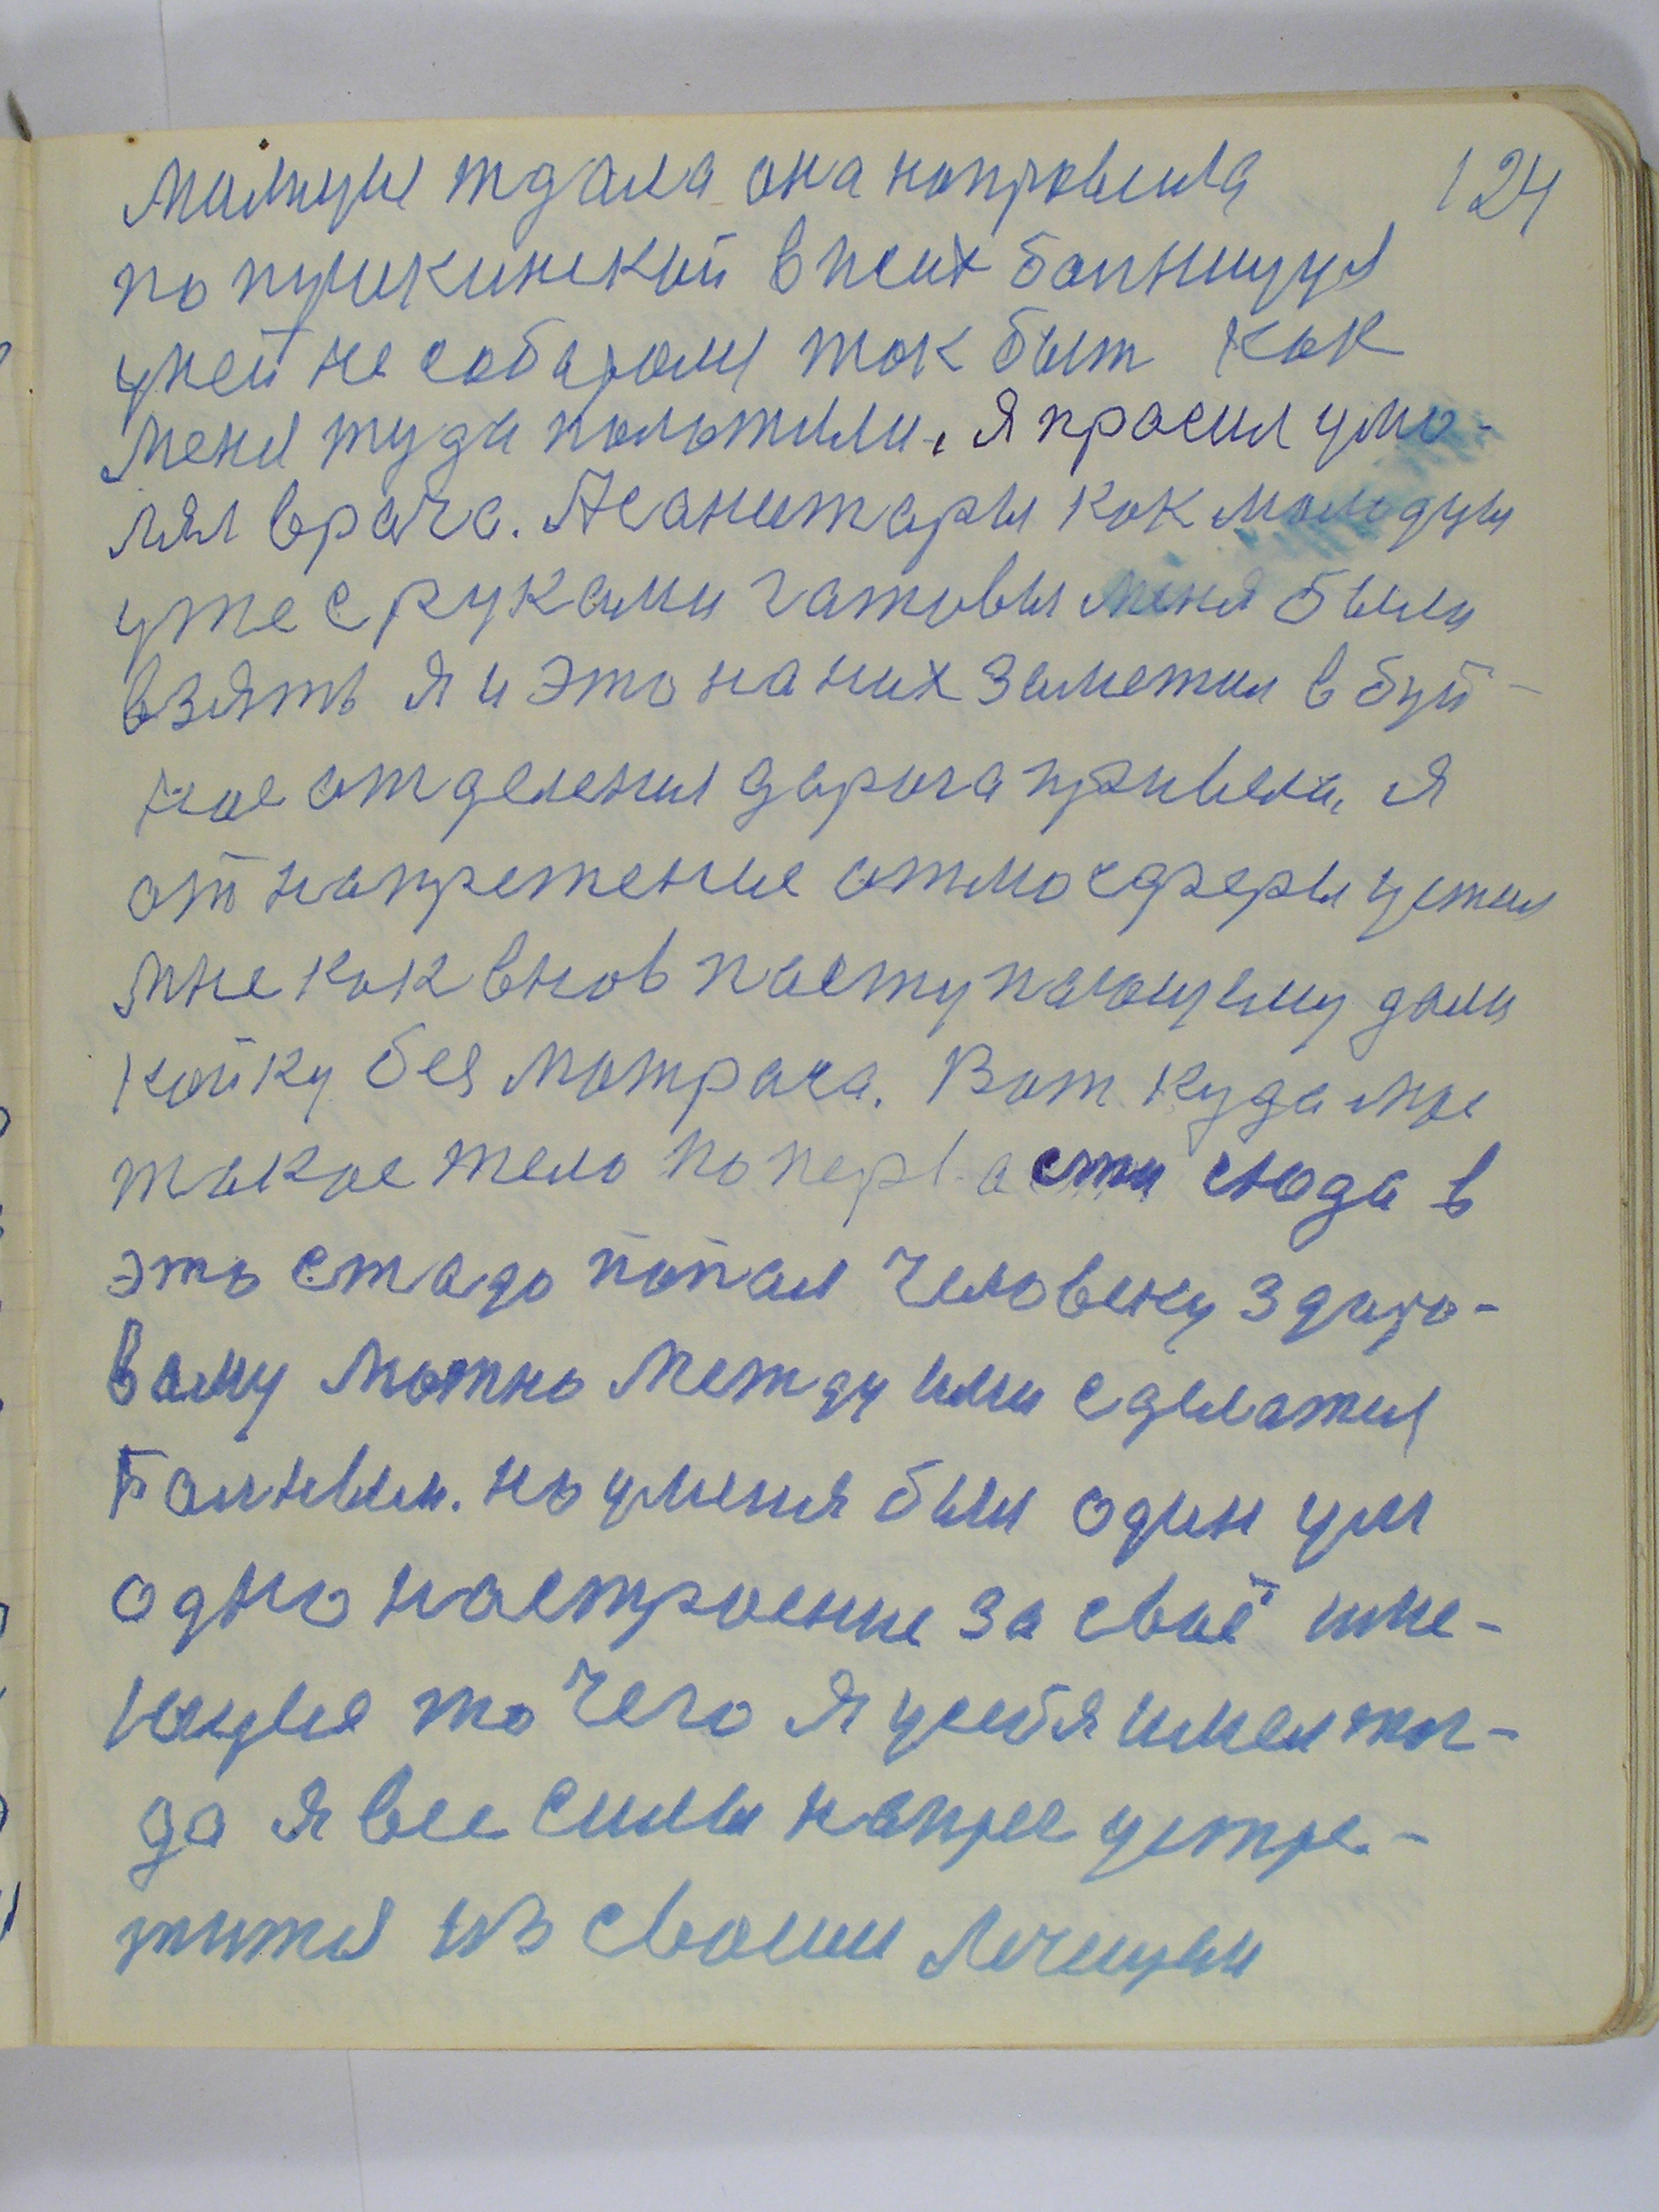 милицыя ждала она направила 124
по пушкинский в псих болницуя
уней не собаролся так быт как
меня туда полажили, Я прасил умо-
лял врача. А санитары как молодцы
уже с руками гатовы меня были
взять я и это на них заметил в буй-
ное отделения дарога привела, я
от напрежение атмосдферы устал
мне как внов паступающиму дали
койку без матраса. Вот куда мне
такое тело по первасти сюда в
это стадо попал человеку здаро-
ваму можно между ими сделатся
Балным. но уменя был один ум
одно настроение за своё име-
ющие то чего я усебя имел тог-
да я все силы напрег устре-
мится из своими